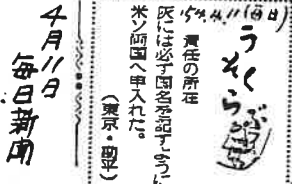 '54.4.11(日日)
うそくらぶ
責任の所在
灰には必ず国名を記すように
米ソ両国へ申入れた。
(東京・助平)
4月11日
毎日新聞